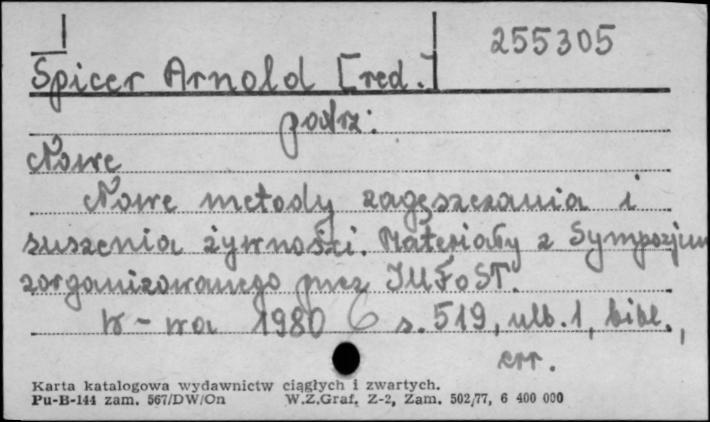 255305
Spicer Arnold [red.]
podrz:
Nowe
Nowe metody zagęszczania i
suszenia żywności. Materiały z Sympozjum
zorganizowanego przez IUFoST.
W-wa 1980 s. 519, ulb. 1, bibl.,
err.
Karta katalogowa wydawnictw ciągłych i zwartych.
Pu-B-144 zam. 567/DW/On W.Z.Graf. Z-2, Zam. 502/77, 6 400 000